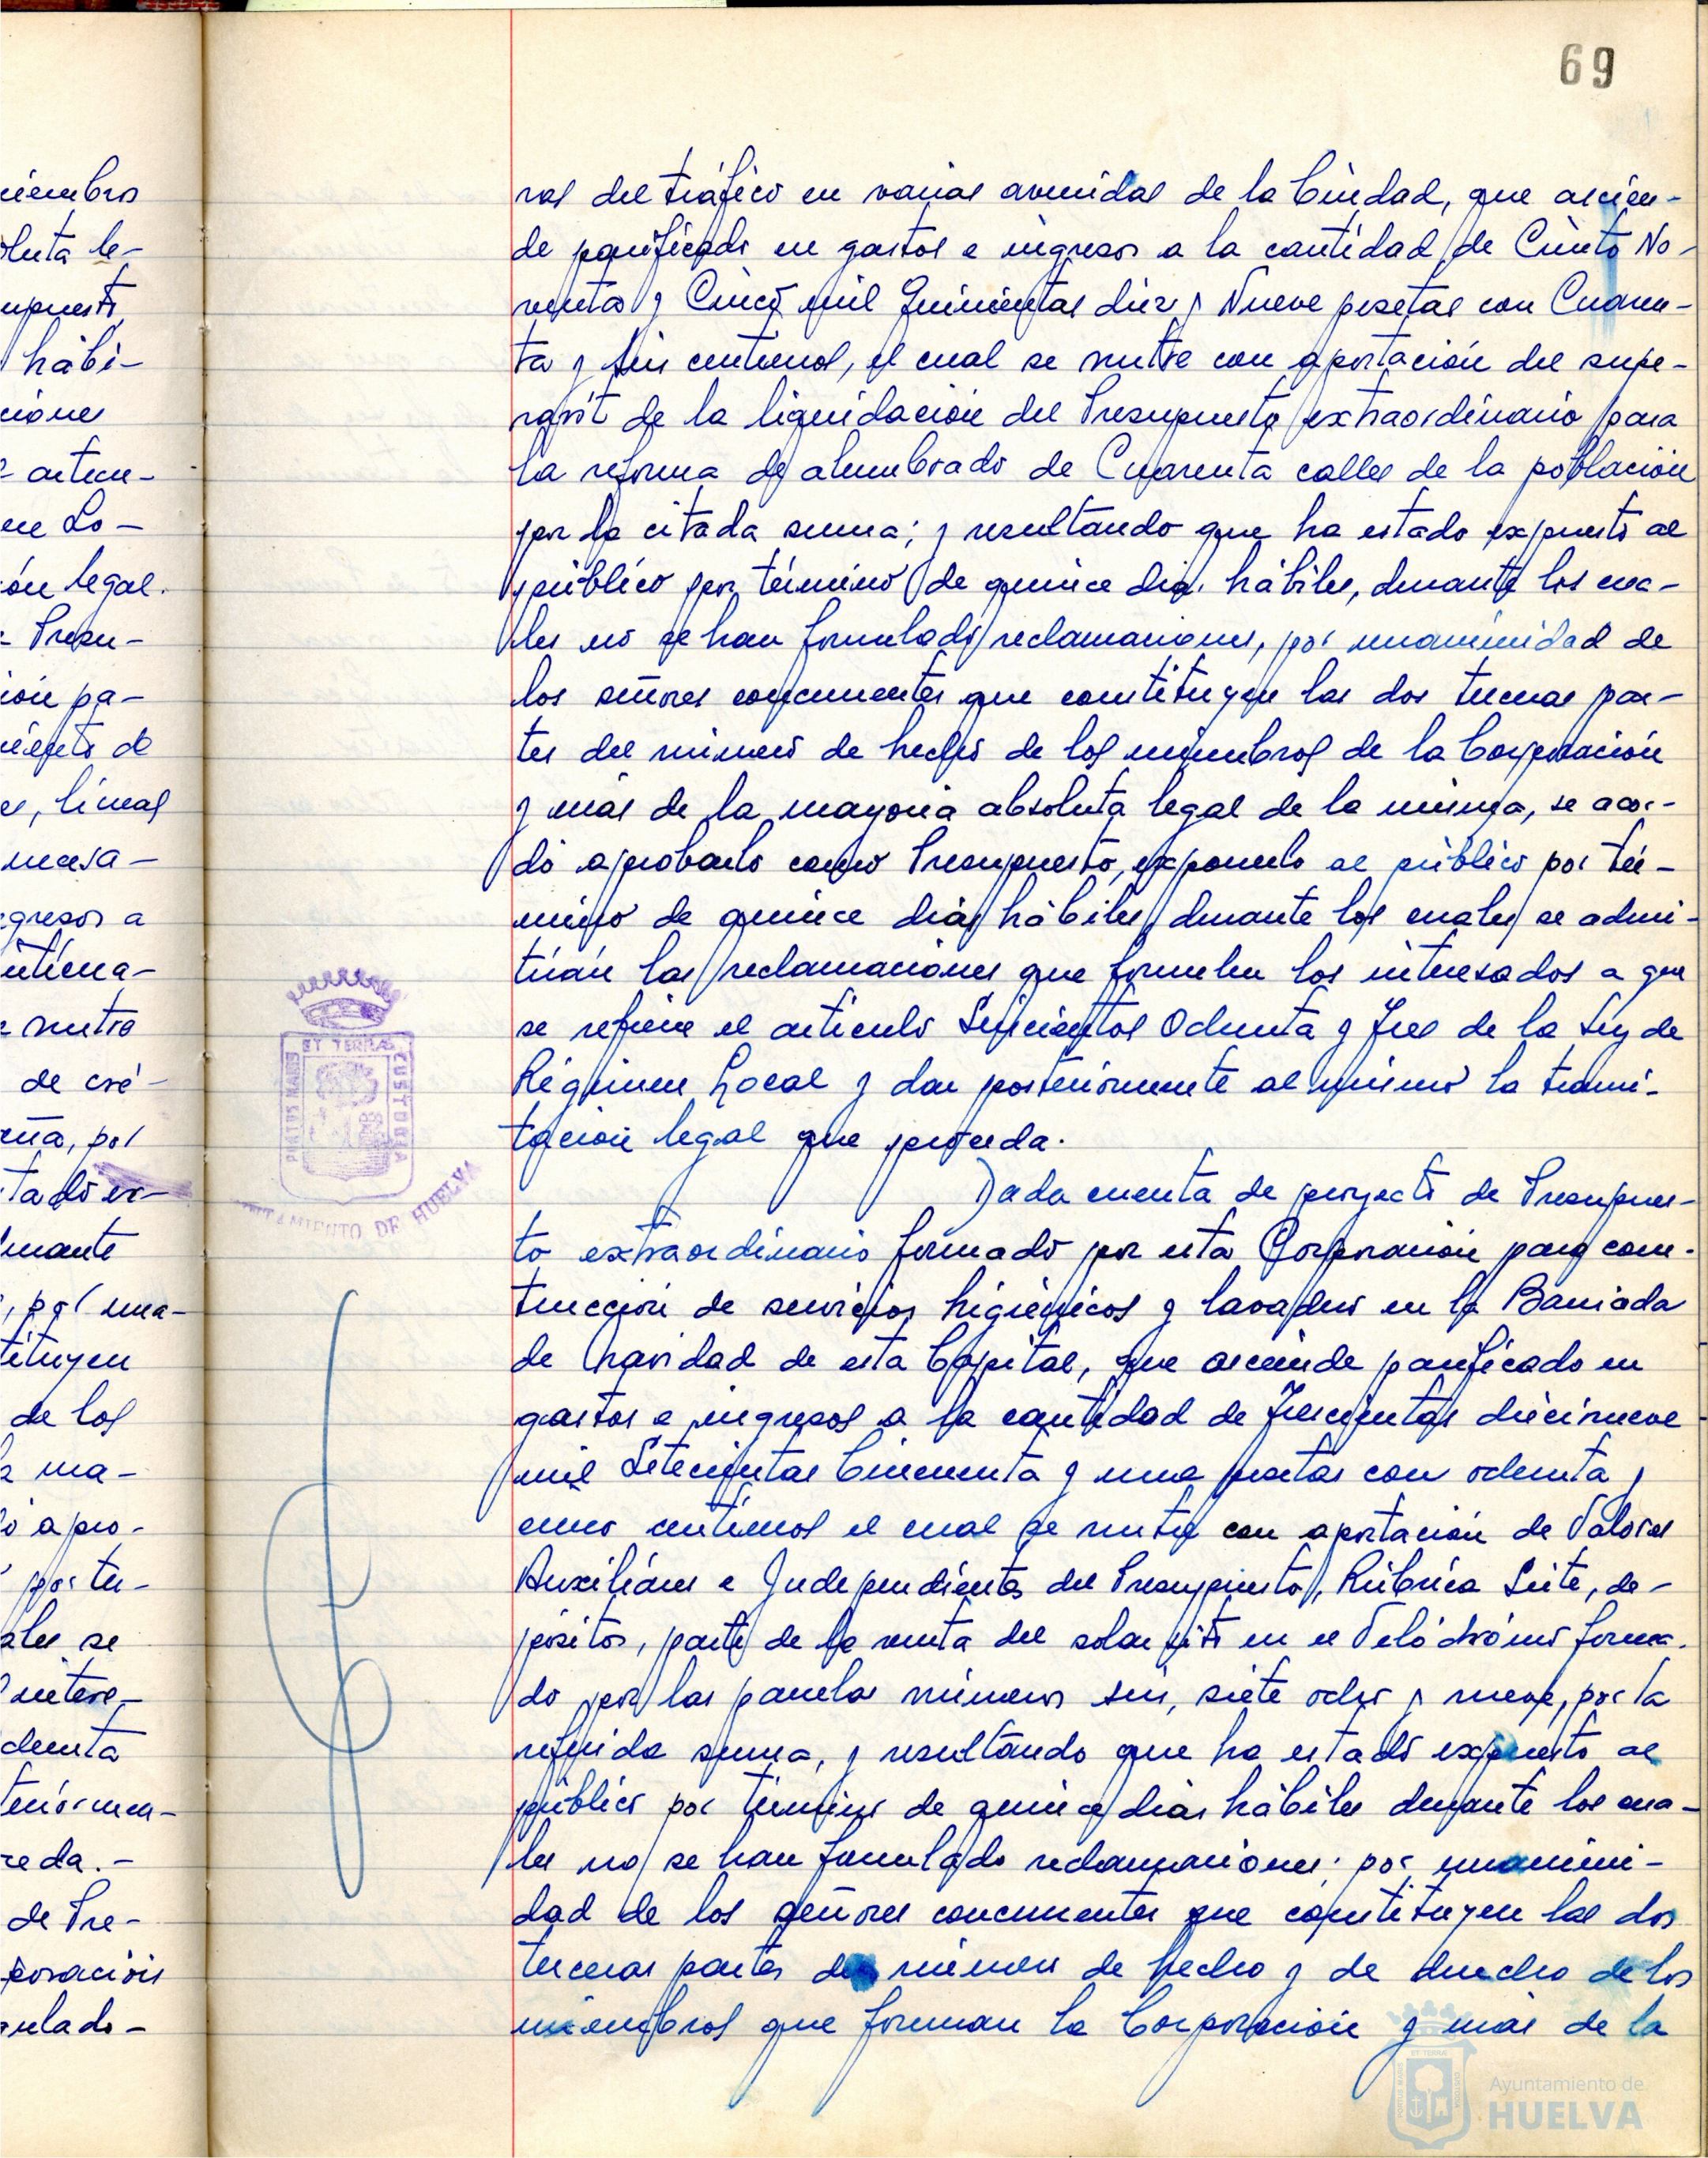 69
ras del tráfico en varias avenidas de la Ciudad, que ascien-
de panificado en gastos e ingresos a la cantidad de Ciento No-
venta y Cinco mil Quinientas diez y Nueve pesetas con Cuaren-
ta y Seis centimos, el cual se nutre con aportación del supe-
ravit de la liquidación del Presupuesto extraordinario para
la reforma de alumbrado de Cuarenta calles de la población
por la citada suma; y resultando que ha estado expuesto al
público por término de quince dias hábiles, durante los cua-
les no se han formulado reclamaciones, por unanimidad de
los señores concurrentes que constituyen las dos terceras par-
tes del número de hecho de los miembros de la Corporación
y más de la mayoria absoluta legal de la misma, se acor-
dó aprobarlo como Presupuesto, exponerlo al público por tér-
mino de quince dias hábiles durante los cuales se admi-
tirán las reclamaciones que formulen los interesados a que
se refiere el articulo Seiscientos Ochenta y Tres de la Ley de
Régimen Local y dar posteriormente al mismo la trami-
tación legal que proceda.
Dada cuenta de proyecto de Presupues-
to extraordinario formado por esta Corporación para cons-
trucción de servicios higiénicos y lavaderos en la Barriada
de Navidad de esta Capital, que asciende panificado en
gastos e ingresos a la cantidad de Trescientas diecinueve
mil Setecientas Cincuenta y una pesetas con ochenta y
cinco centimos el cual se nutre con aportación de Valores
Auxiliares e Independientes del Presupuesto, Rúbrica Siete, de-
pósitos, parte de la venta del solar sito en el Velódromo forma-
do por las parcelas números seis, siete ocho y nueve, por la
referida suma, y resultando que ha estado expuesto al
público por término de quince dias hábiles durante los cua-
les no se han formulado reclamaciones; por unanimi-
dad de los señores concurrentes que constituyen las dos
terceras partes del número de hecho y de derecho de los
miembros que forman la Corporación y más de la
ET TERRAE
CUSTODIA
AYUNTAMIENTO DE HUELVA
Ayuntamiento de
HUELVA